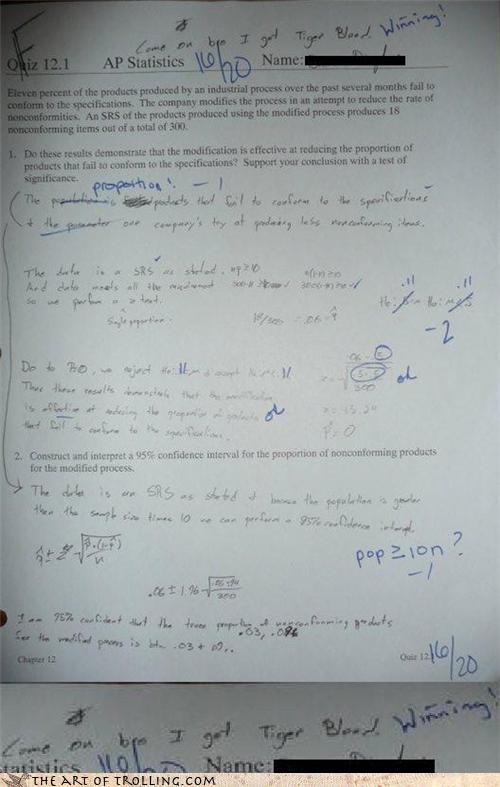 Come on bro I got Tiger Blood. Winning!
Quiz 12.1 AP Statistics 16/20 Name:
Eleven percent of the products produced by an industrial process over the past several months fail to
conform to the specifications. The company modifies the process in an attempt to reduce the rate of
nonconformities. An SRS of the products produced using the modified process produces 18
nonconforming items out of a total of 300.
1. Do these results demonstrate that the modification is effective at reducing the proportion of
products that fail to conform to the specifications? Support your conclusion with a test of
significance.
proportion! -1
The is products that fail to conform to the specifications
the parameter our company's try at producing less nonconforming items.
The data is a SRS as stated. np≥10
And data meets all the requirement
so we perform a z test.
.11 .11
Single proportion. 18/300 = .06 = p̂
-2
Do to P=0, we reject Ho:
Thus these results demonstrate that the modification
is effective at reducing the proportion of products ok
that fail to conform to the specifications.
ok
300
P=0
2. Construct and interpret a 95% confidence interval for the proportion of nonconforming products
for the modified process.
The data is an SRS as stated & because the population is greater
then the sample size times 10 we can perform a 95% confidence interval.
pop ≥ 10n?
-1
.06 ± 1.96 √.06·.94/300
I am 95% confident that the true proportion of nonconforming products
for the modified process is btw .03 +
Chapter 12 Quiz 12 16/20
Come on bro I got Tiger Blood. Winning!
tatistics 16/20 Name:
THE ART OF TROLLING.COM